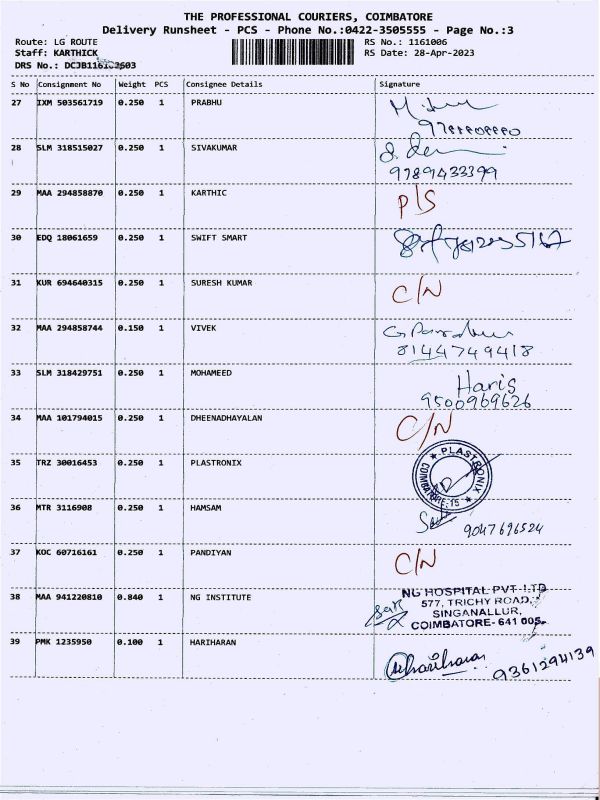 THE PROFESSIONAL COURIERS, COIMBATORE
Delivery Runsheet - PCS - Phone No.:0422-3505555 - Page No.:3
Route: LG ROUTE RS No.: 1161006
Staff: KARTHICK RS Date: 28-Apr-2023
DRS No.:
S No Consignment No Weight PCS Consignee Details Signature
27 IXM 503561719 0.250 1 PRABHU
28 SLM 318515027 0.250 1 SIVAKUMAR
9789433399
29 MAA 294858870 0.250 1 KARTHIC P/S
30 EDQ 18061659 0.250 1 SWIFT SMART
31 KUR 694640315 0.250 1 SURESH KUMAR C/N
32 MAA 294858744 0.150 1 VIVEK
8144749418
33 SLM 318429751 0.250 1 MOHAMEED Haris
9500969626
34 MAA 101794015 0.250 1 DHEENADHAYALAN C/N
35 TRZ 30016453 0.250 1 PLASTRONIX
★ PLASTRONIX ★ COIMBATORE-15
36 MTR 3116908 0.250 1 HAMSAM
9047696524
37 KOC 60716161 0.250 1 PANDIYAN C/N
38 MAA 941220810 0.840 1 NG INSTITUTE NG HOSPITAL PVT-LTD
577, TRICHY ROAD,
SINGANALLUR,
COIMBATORE-641 005.
39 PMK 1235950 0.100 1 HARIHARAN
Hariharan 9361294139